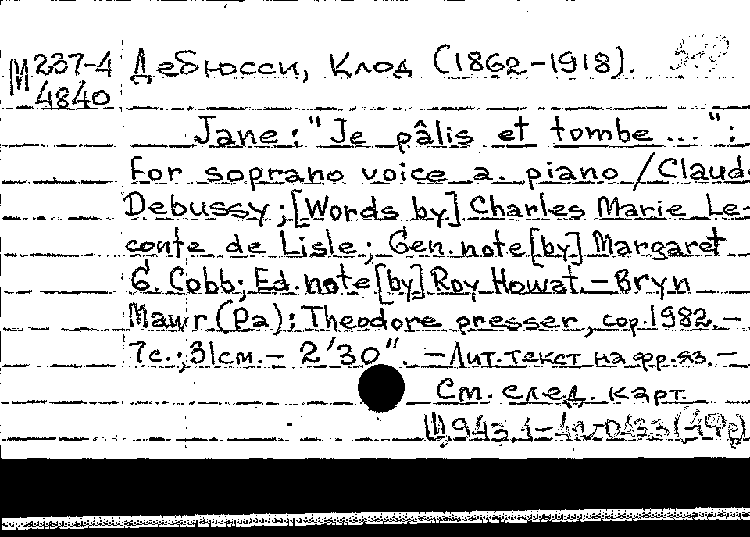 М 237-4 Дебюсси, Клод (1862-1918).
4840
Jane: "Je pâlis et tombe...":
For soprano voice a. piano / Claude
Debussy; [Words by] Charles Marie Le-
conte de Lisle; Gen. note [by] Margaret
G. Cobb; Ed. note [by] Roy Howat. - Bryn
Mawr (Pa): Theodore presser, cop. 1982. -
7c.; 31cм. - 2'30". - Лит. текст на фр. яз. -
См. след. карт.
Щ943.1-